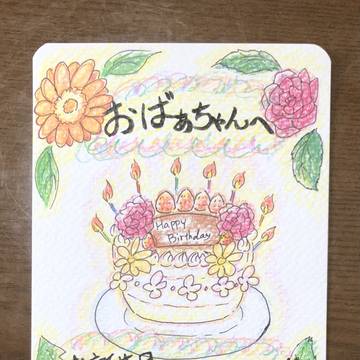 おばぁちゃんへ
Happy
Birthday